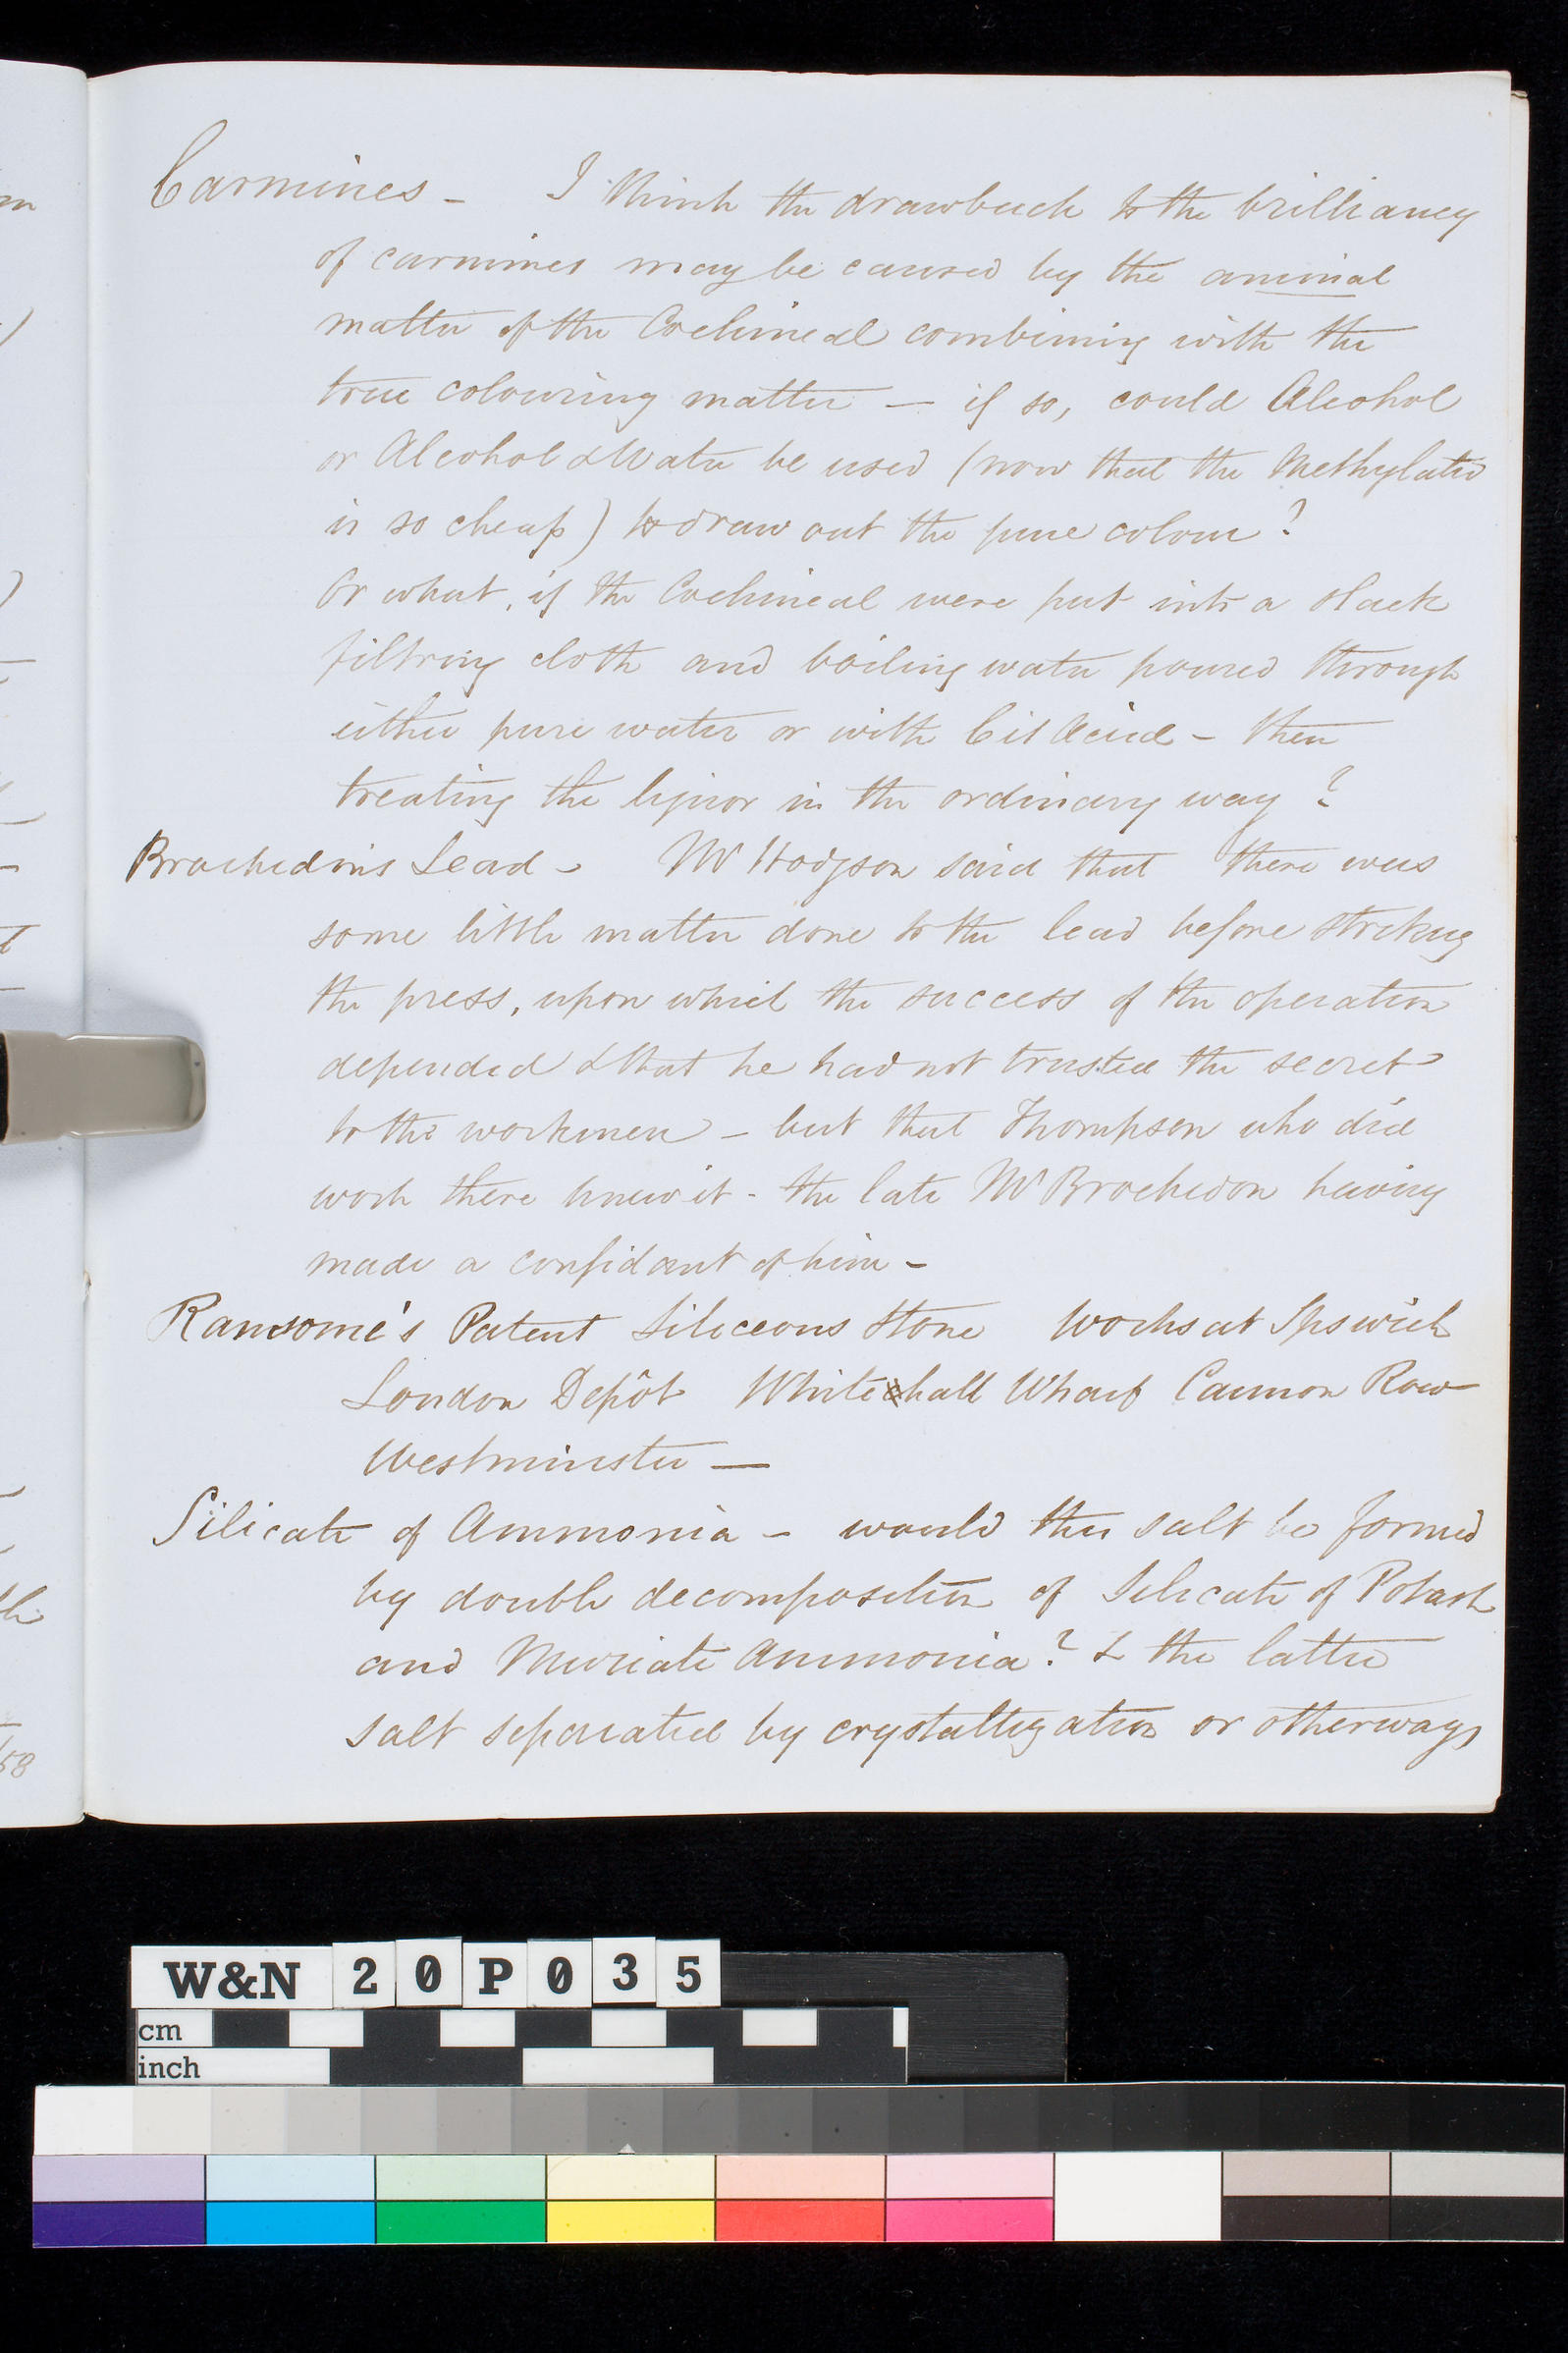 Carmines - I think the drawback to the brilliancy
of carmines may be caused by the animal
matter of the Cochineal combining with the
true colouring matter - if so, could Alcohol
or Alcohol & Water be used (now that the Methylated
is so cheap) to draw out the pure colour?
Or what, if the Cochineal were put into a slack
filtring cloth and boiling water poured through
either pure water or with Cit Acid - then
treating the liquor in the ordinary way?
Brockedon's Lead - Mr Hodgson said that there was
some little matter done to the lead before striking
the press, upon which the success of the operation
depended & that he had not trusted the secret
to the workmen - but that Thompson who did
work there knew it - the late Mr Brockedon having
made a confidant of him -
Ransome's Patent Siliceous Stone Works at Ipswich
London Depôt Whitehall Wharf Cannon Row
Westminster -
Silicate of Ammonia - would this salt be formed
by double decomposition of Silicate of Potash
and Muriate Ammonia? & the latter
salt separated by crystallization or otherways
58
W&N 20P035
cm
inch